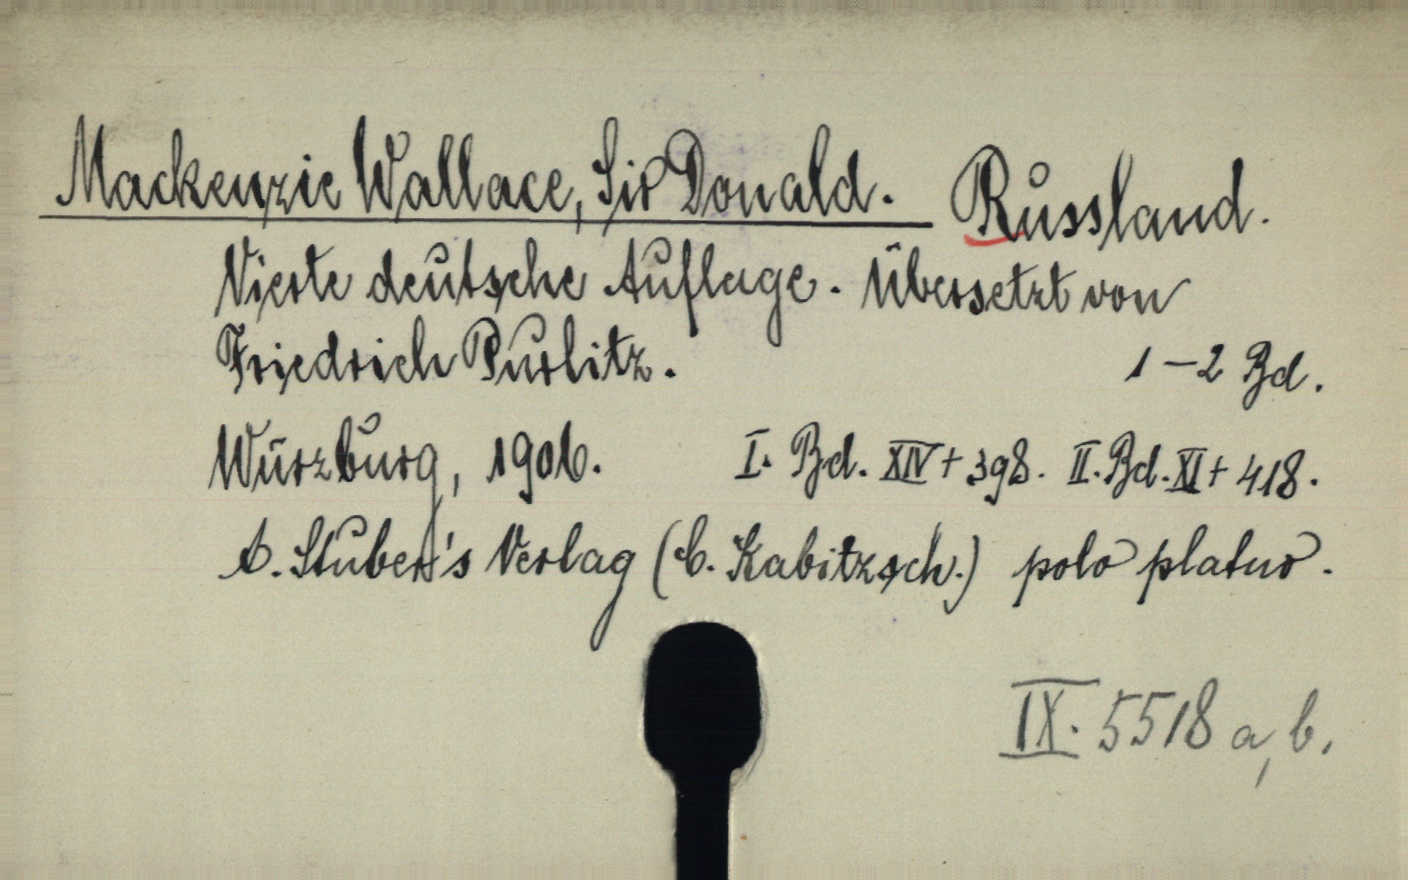 Mackenzie Wallace, Sir Donald. Russland.
Vierte deutsche Auflage. Übersetzt von
Friedrich Purlitz. 1-2 Bd.
Würzburg, 1906. I. Bd. XIV + 398. II. Bd. XI + 418.
A. Stuber's Verlag (C. Kabitzsch.) polo platno.
IX. 5518 a, b.